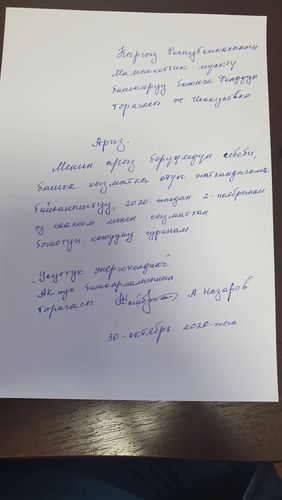 Кыргыз Республикасынын
Мамлекеттик мүлктү
башкаруу боюнча Фондун
төрагасы
Арыз.
Менин арыз берүүмдүн себеби,
башка кызматка өтүп жаткандыгыма
байланыштуу, 2020-жылдын 2-ноябрынан
өз каалоом менен кызматтан
бошотуп коюуңузду суранам.
"Улуттук энергохолдинг"
ААК нун башкармалыгынын
төрагасы А Назаров
30-октябрь 2020-жыл.